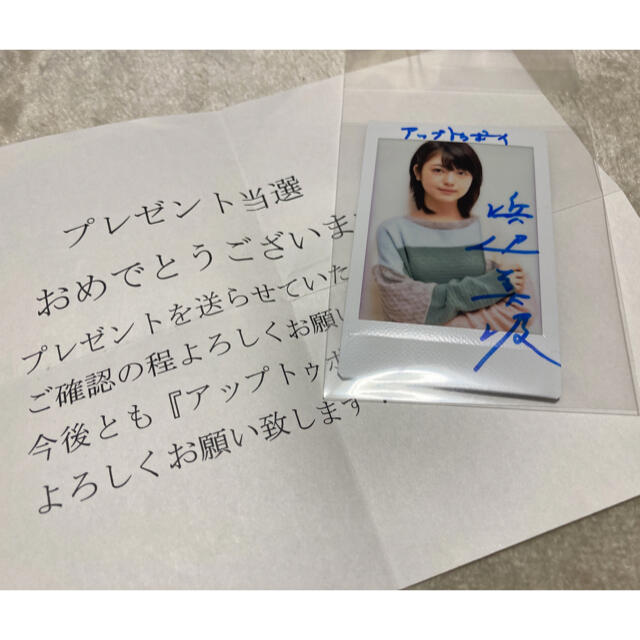 プレゼント当選
おめでとうございま
プレゼントを送らせていた
ご確認の程よろしくお願い
今後とも『アップトゥボ
よろしくお願い致します
アップトゥボーイ
浜辺美波